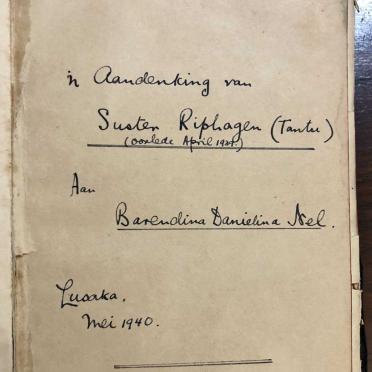 'n Aandenking van
Suster Riphagen (Tantu)
(Oorlede April 1921.)
Aan
Barendina Danielina Nel.
Lusaka.
Mei 1940.